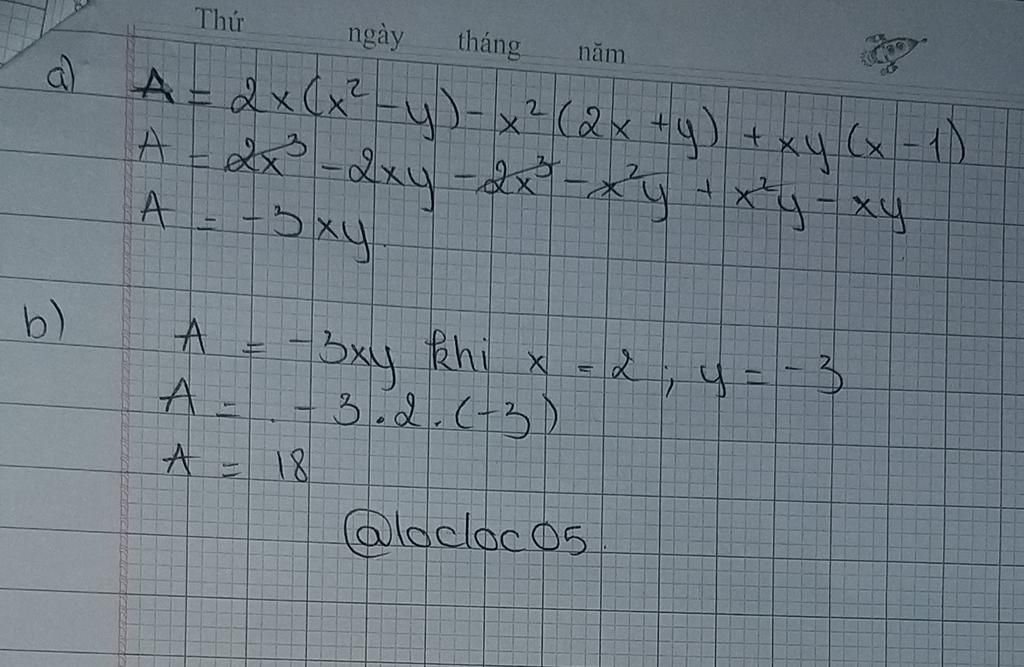 Thứ ngày tháng năm
a) A = 2x(x² - y) - x²(2x + y) + xy(x - 1)
A = 2x³ - 2xy - 2x³ - x²y + x²y - xy
A = -3xy
b) A = -3xy khi x = 2; y = -3
A = -3.2.(-3)
A = 18
@locloc05